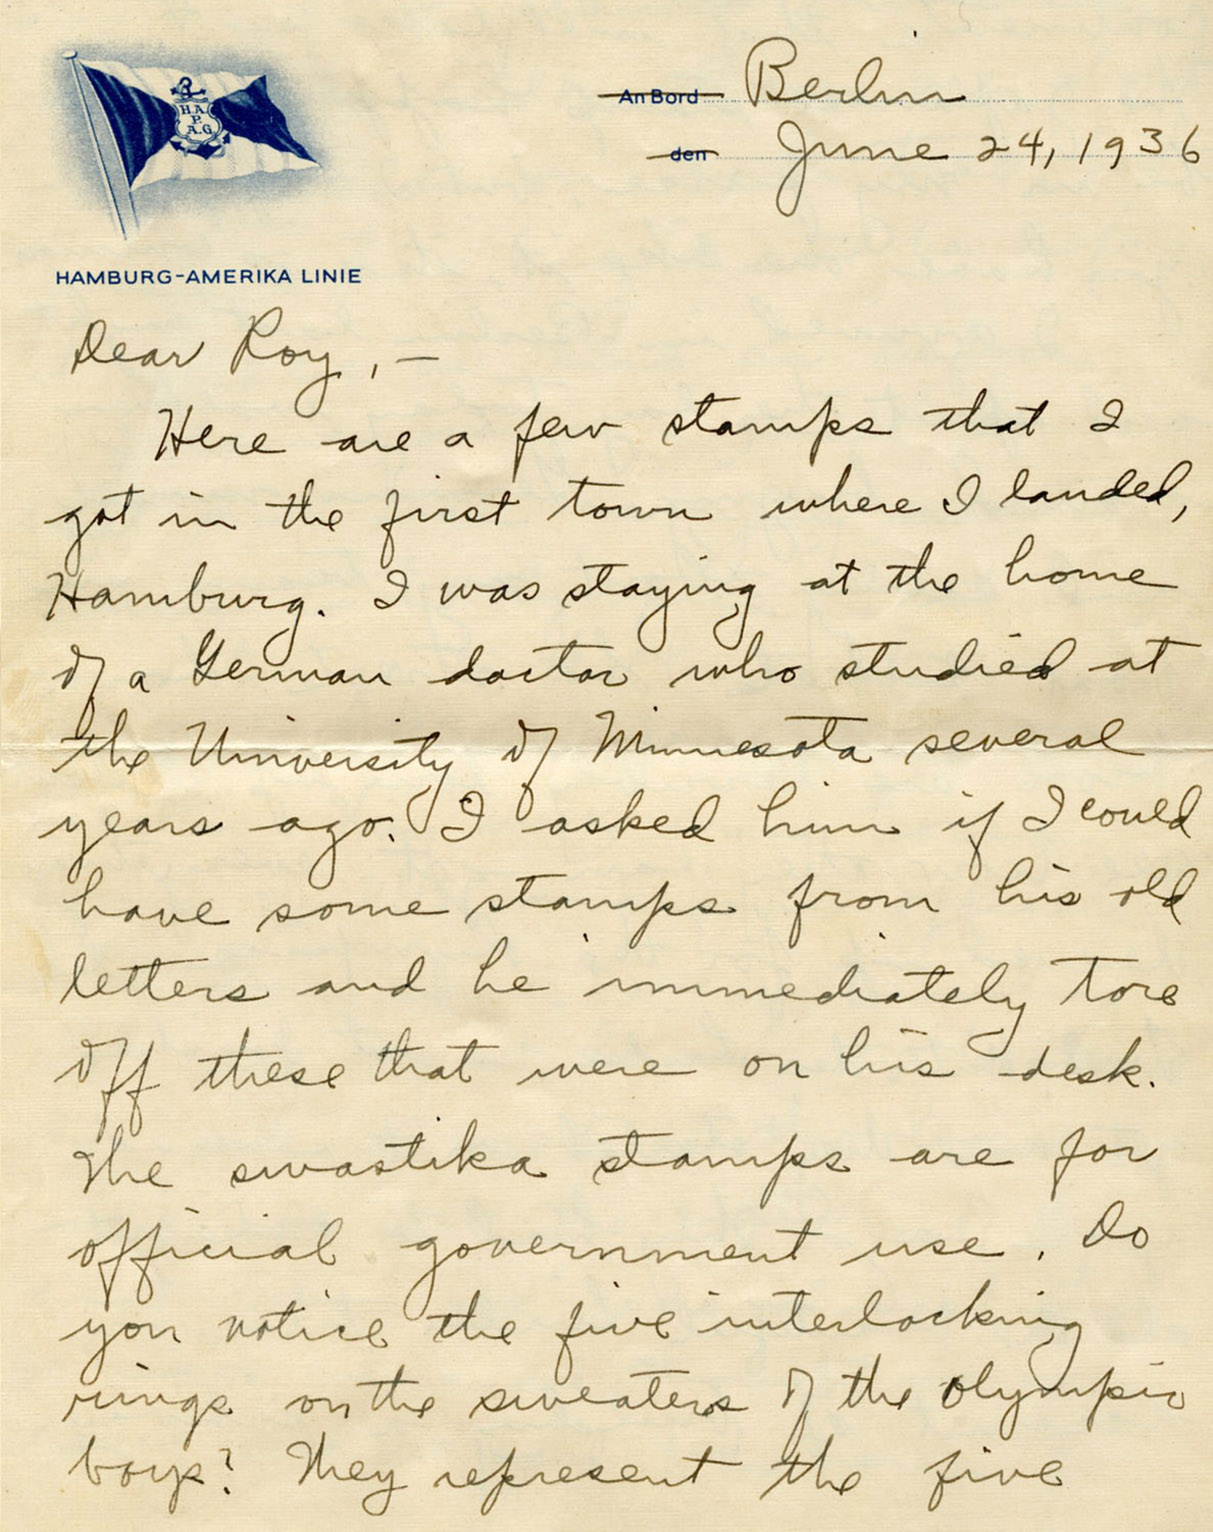 H.A.
P.
A.G.
HAMBURG-AMERIKA LINIE
An Bord Berlin
den June 24, 1936
Dear Roy, —
Here are a few stamps that I
got in the first town where I landed,
Hamburg. I was staying at the home
of a German doctor who studied at
the University of Minnesota several
years ago. I asked him if I could
have some stamps from his old
letters and he immediately tore
off these that were on his desk.
The swastika stamps are for
official government use. Do
you notice the five interlocking
rings on the sweaters of the Olympic
boys? They represent the five